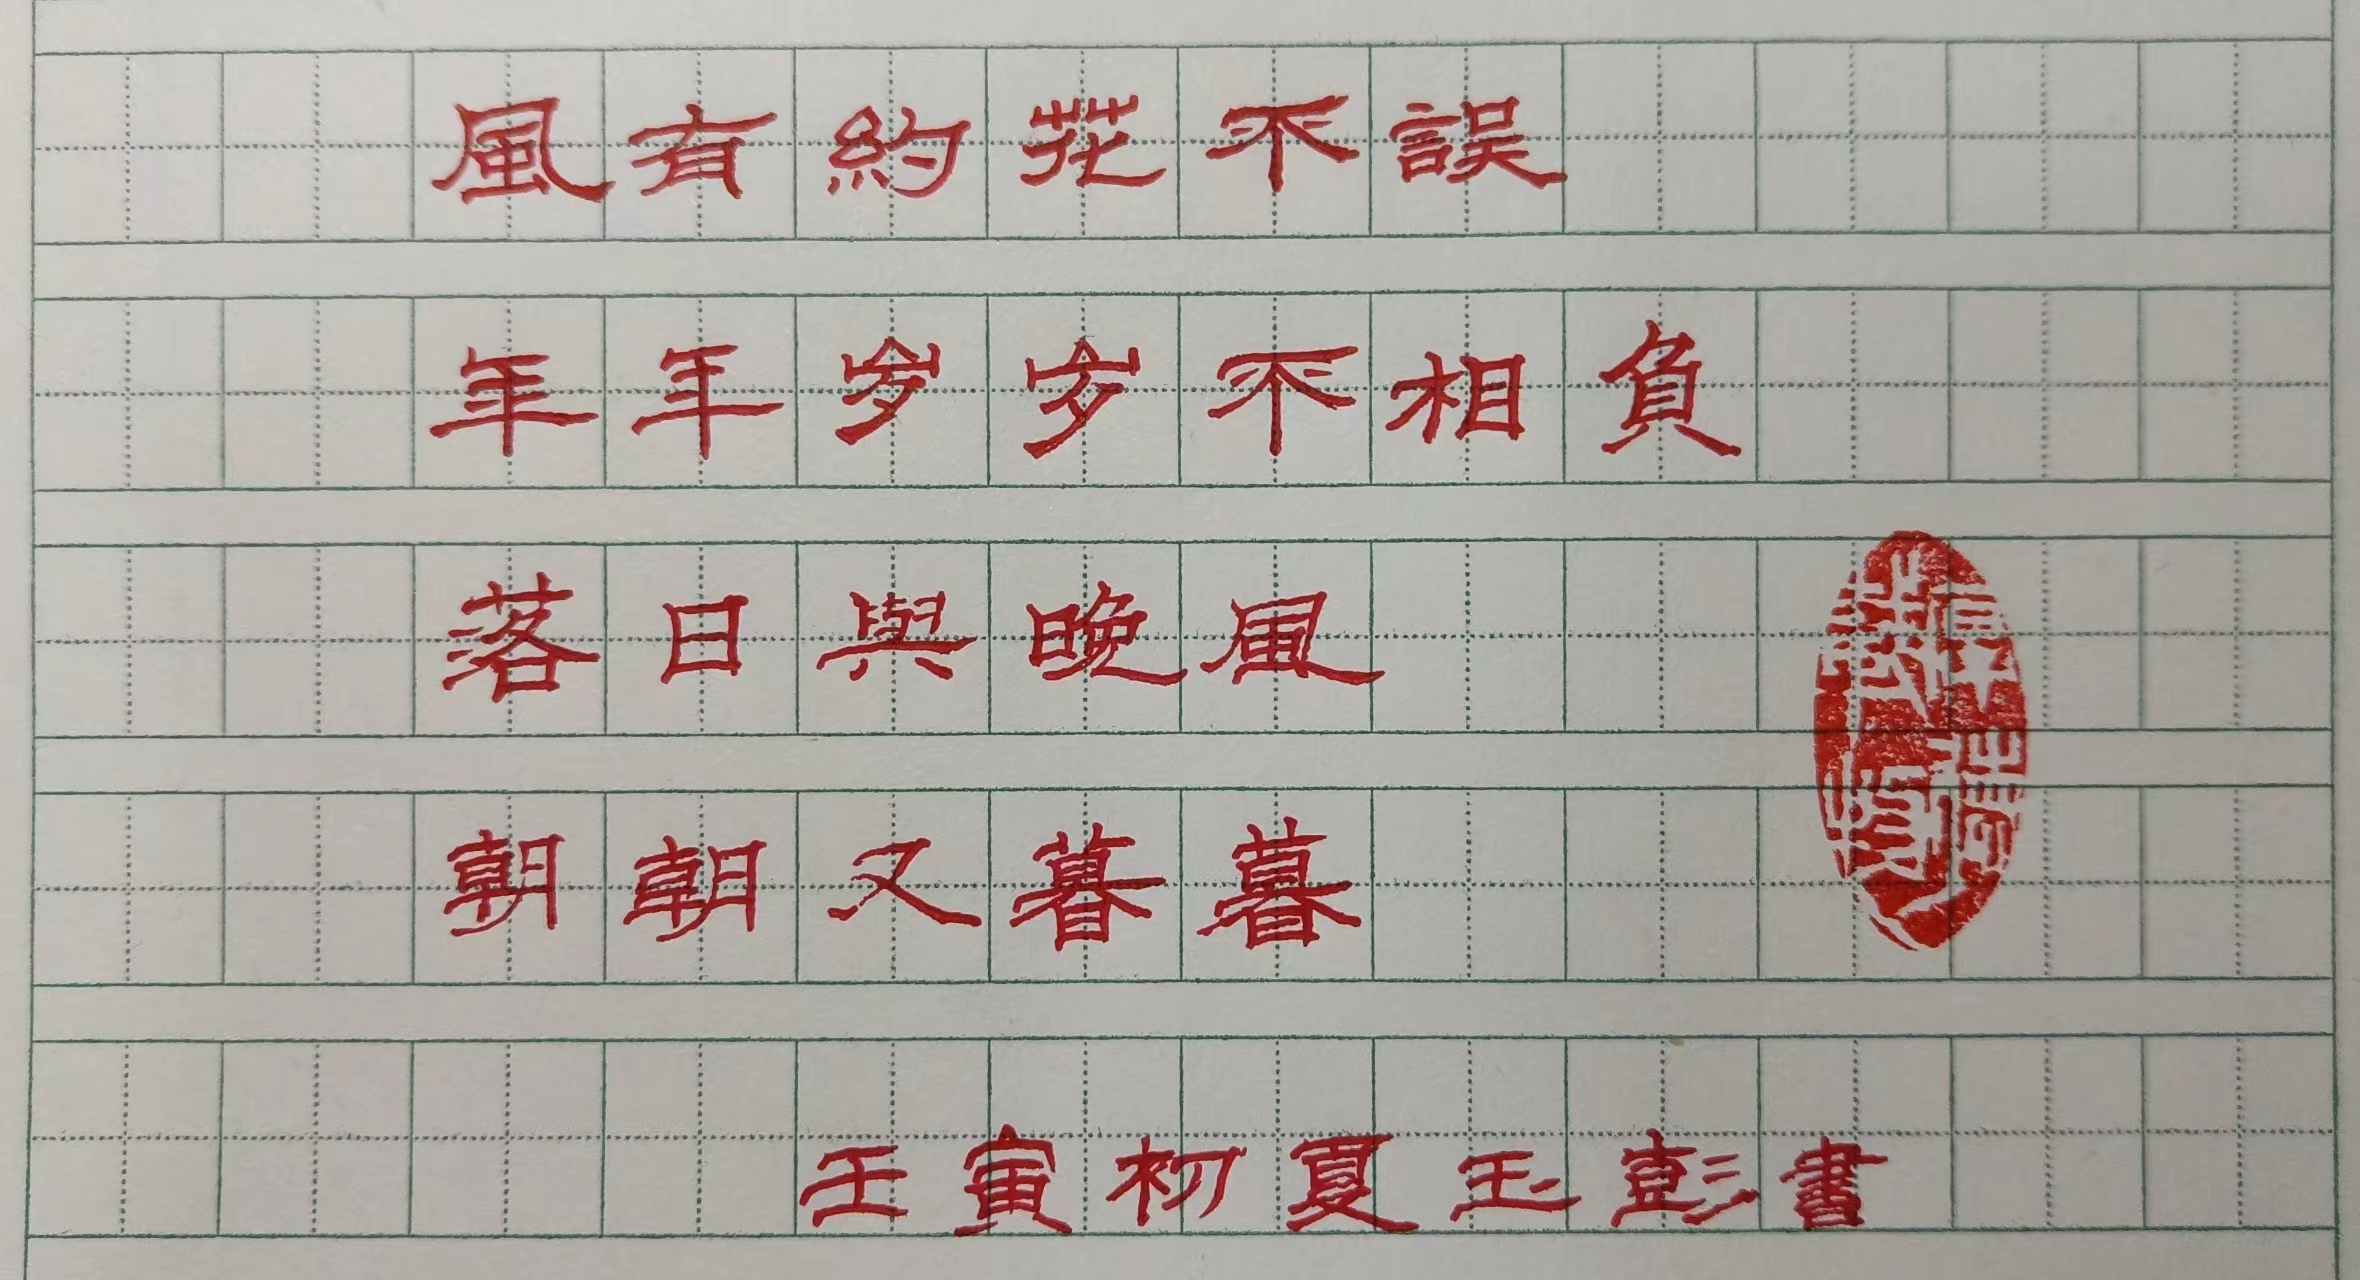 風有約花不誤
年年岁岁不相負
落日與晚風
朝朝又暮暮
壬寅初夏玉彭書